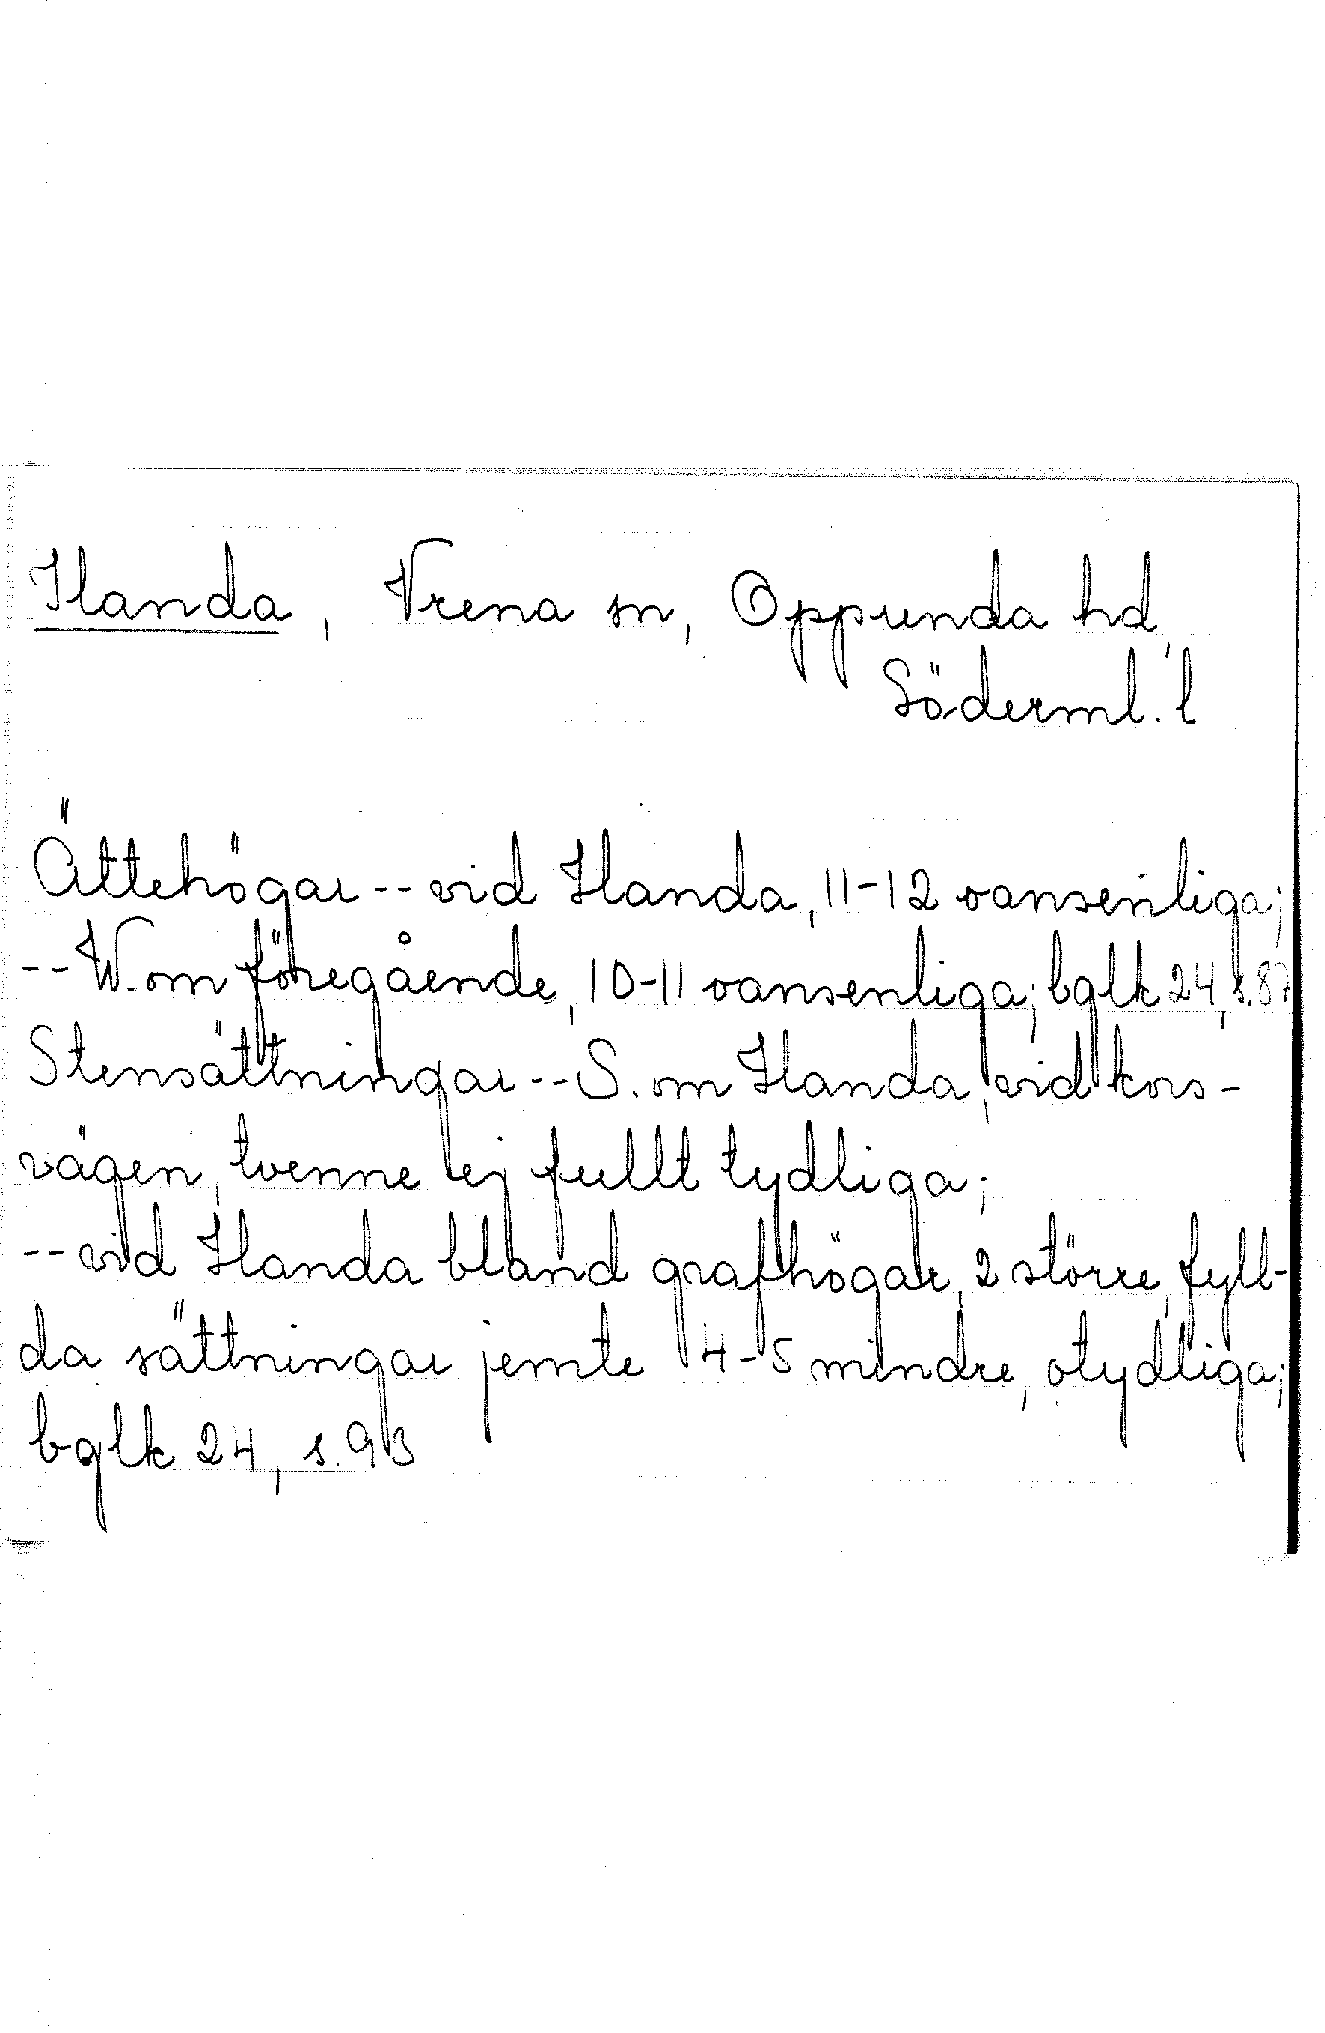 Handa, Vrena sn, Oppunda hd,
Söderml. l
Ättehögar -- vid Handa, 11-12 oansenliga;
-- W. om föregående, 10-11 oansenliga; bglk 24, s. 87
Stensättningar -- S. om Handa, vid kors-
vägen, tvenne ej fullt tydliga;
-- vid Handa bland grafhögar, 2 större, fyll-
da sättningar jemte 4-5 mindre, otydliga;
bglk 24, s. 93